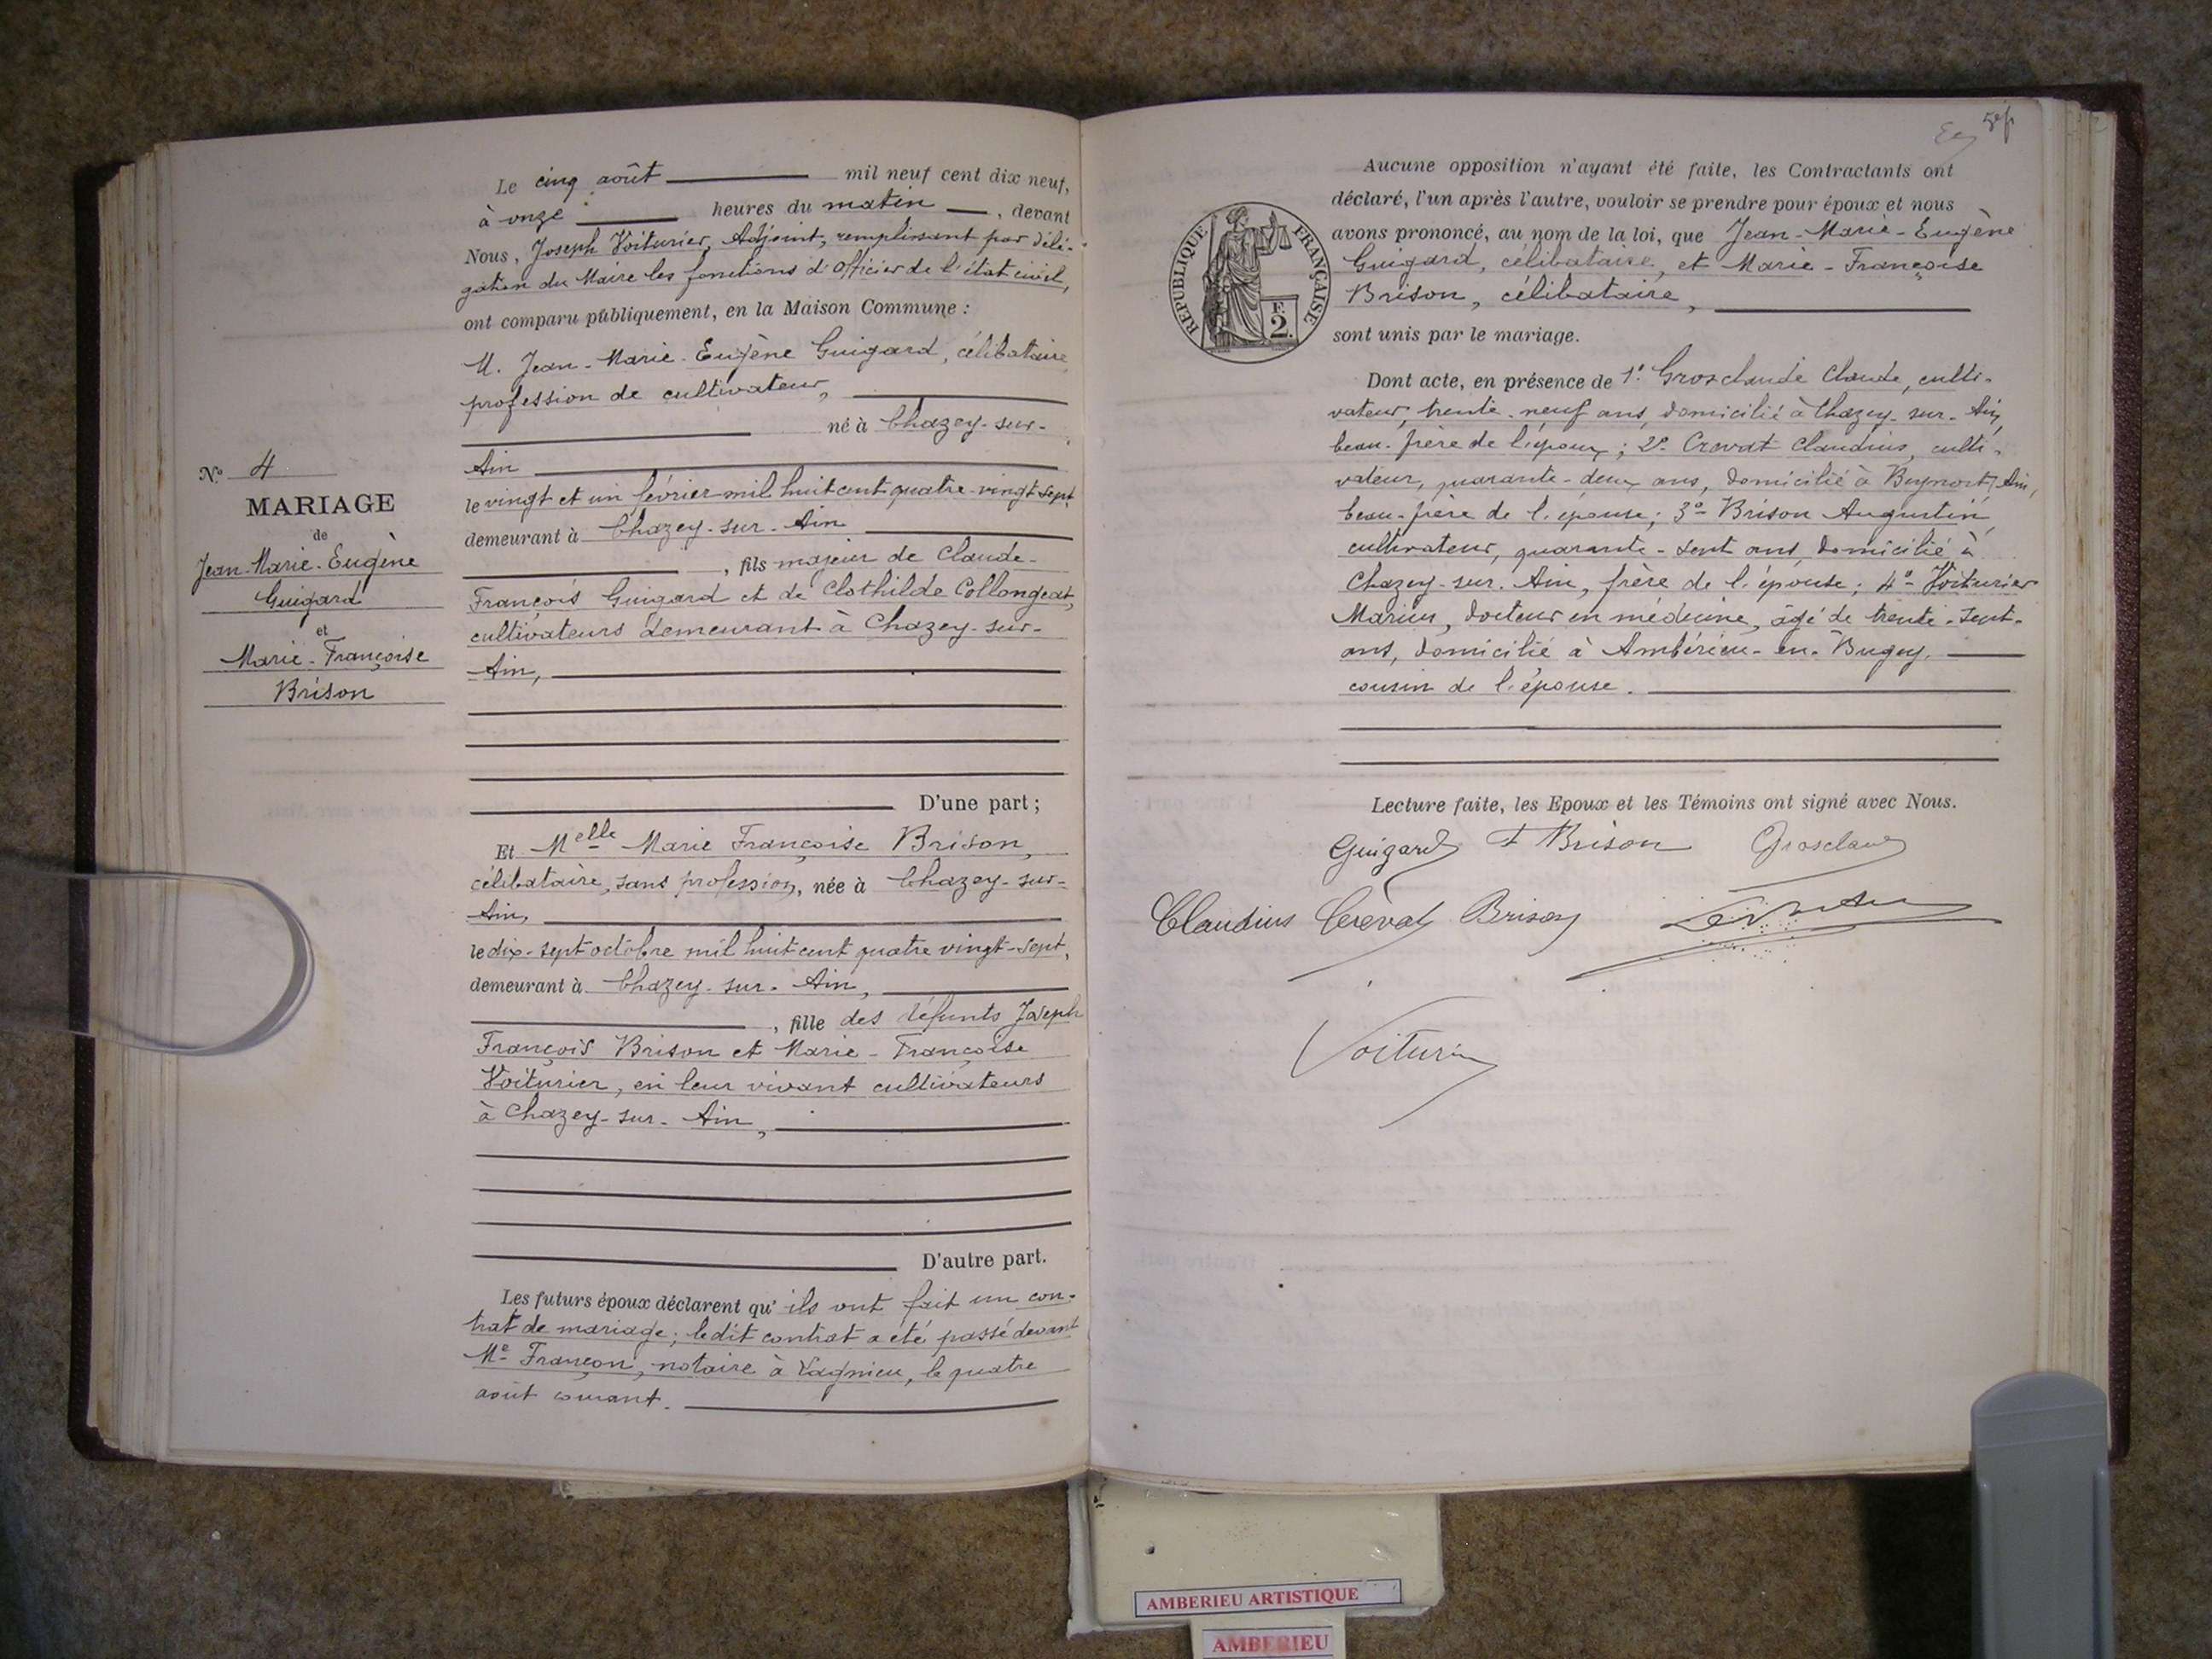 Le cinq août mil neuf cent dix neuf,
à onze heures du matin, devant
Nous, Joseph Voiturier, Adjoint, remplissant par délé-
gation du Maire les fonctions d'officier de l'état civil,
ont comparu publiquement, en la Maison Commune :
M. Jean-Marie-Eugène Guigard, célibataire
profession de cultivateur,
né à Chazey-sur-
Ain
le vingt et un février mil huit cent quatre-vingt sept,
demeurant à Chazey-sur-Ain
, fils majeur de Claude-
François Guigard et de Clothilde Collongeat,
cultivateurs demeurant à Chazey-sur-
Ain,
D'une part ;
Et Melle Marie Françoise Brison,
célibataire, sans profession, née à Chazey-sur-
Ain,
le dix-sept octobre mil huit cent quatre vingt-sept,
demeurant à Chazey-sur-Ain,
, fille des défunts Joseph
François Brison et Marie-Françoise
Voiturier, en leur vivant cultivateurs
à Chazey-sur-Ain,
D'autre part.
Les futurs époux déclarent qu'ils ont fait un con-
trat de mariage; ledit contrat a été passé devant
Me Françon, notaire à Lagnieu, le quatre
août courant.
No 4
MARIAGE
de
Jean-Marie-Eugène
Guigard
et
Marie-Françoise
Brison
Aucune opposition n'ayant été faite, les Contractants ont
déclaré, l'un après l'autre, vouloir se prendre pour époux et nous
avons prononcé, au nom de la loi, que Jean-Marie-Eugène
Guigard, célibataire, et Marie-Françoise
Brison, célibataire,
sont unis par le mariage.
RÉPUBLIQUE FRANÇAISE
F.
2.
Dont acte, en présence de 1º Grosclaude Claude, culti-
vateur, trente-neuf ans, domicilié à Chazey-sur-Ain,
beau-frère de l'époux; 2º Crevat Claudius, culti-
vateur, quarante-deux ans, domicilié à Ain,
beau-frère de l'épouse; 3º Brison Augustin,
cultivateur, quarante-sept ans, domicilié à
Chazey-sur-Ain, frère de l'épouse; 4º Voiturier
Marius, docteur en médecine, âgé de trente-sept-
ans, domicilié à Ambérieu-en-Bugey,
cousin de l'épouse.
Lecture faite, les Epoux et les Témoins ont signé avec Nous.
Guigard F Brison Grosclaude
Claudius Crevat Brison
Voiturier
AMBERIEU ARTISTIQUE
AMBERIEU